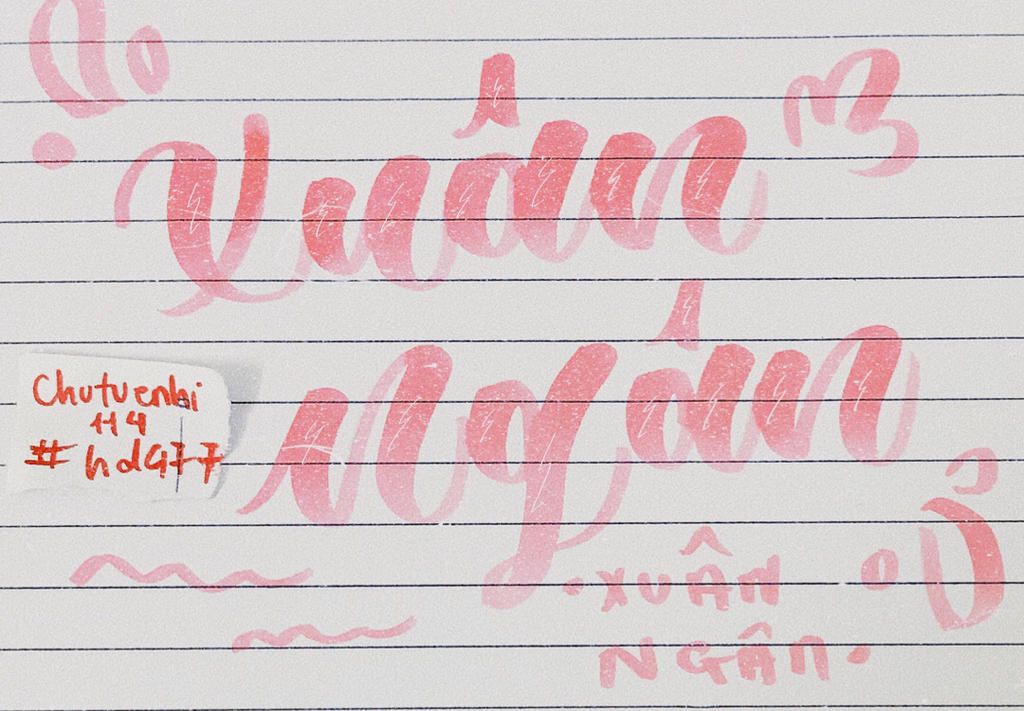 Xuân
Ngân
Chutuenhi
114
#hd477
XUÂN
NGÂN